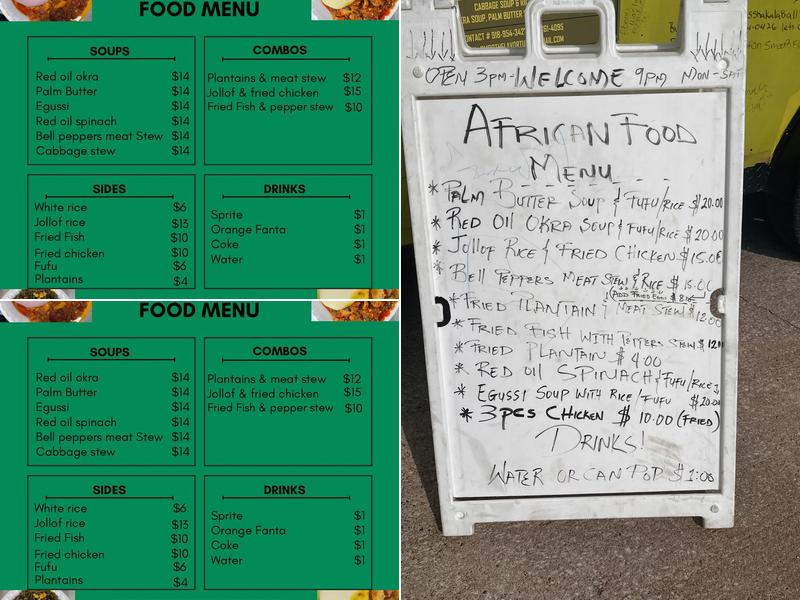 FOOD MENU
SOUPS
Red oil okra $14
Palm Butter $14
Egussi $14
Red oil spinach $14
Bell peppers meat Stew $14
Cabbage stew $14
COMBOS
Plantains & meat stew $12
Jollof & fried chicken $15
Fried Fish & pepper stew $10
SIDES
White rice $6
Jollof rice $13
Fried Fish $10
Fried chicken $10
Fufu $6
Plantains $4
DRINKS
Sprite $1
Orange Fanta $1
Coke $1
Water $1
FOOD MENU
SOUPS
Red oil okra $14
Palm Butter $14
Egussi $14
Red oil spinach $14
Bell peppers meat Stew $14
Cabbage stew $14
COMBOS
Plantains & meat stew $12
Jollof & fried chicken $15
Fried Fish & pepper stew $10
SIDES
White rice $6
Jollof rice $13
Fried Fish $10
Fried chicken $10
Fufu $6
Plantains $4
DRINKS
Sprite $1
Orange Fanta $1
Coke $1
Water $1
CABBAGE SOUP &
SOUP, PALM BUTTER
OPEN 3PM-WELCOME 9PM MON-SAT
AFRICAN FOOD
MENU
* PALM BUTTER SOUP & FUFU/RICE $20.00
* RED OIL OKRA SOUP & FUFU/RICE $20.00
* JOLLOF RICE & FRIED CHICKEN $15.00
* BELL PEPPERS MEAT STEW & RICE $15.00
(ADD FRIED EGGS
* FRIED PLANTAIN & MEAT STEW $12.00
* FRIED FISH WITH PEPPERS STEW $12.00
* FRIED PLANTAIN $4.00
* RED OIL SPINACH & FUFU/RICE
* EGUSSI SOUP WITH RICE/FUFU $20.00
* 3PCS CHICKEN $10.00 (FRIED)
DRINKS!
WATER OR CAN POP $1:00